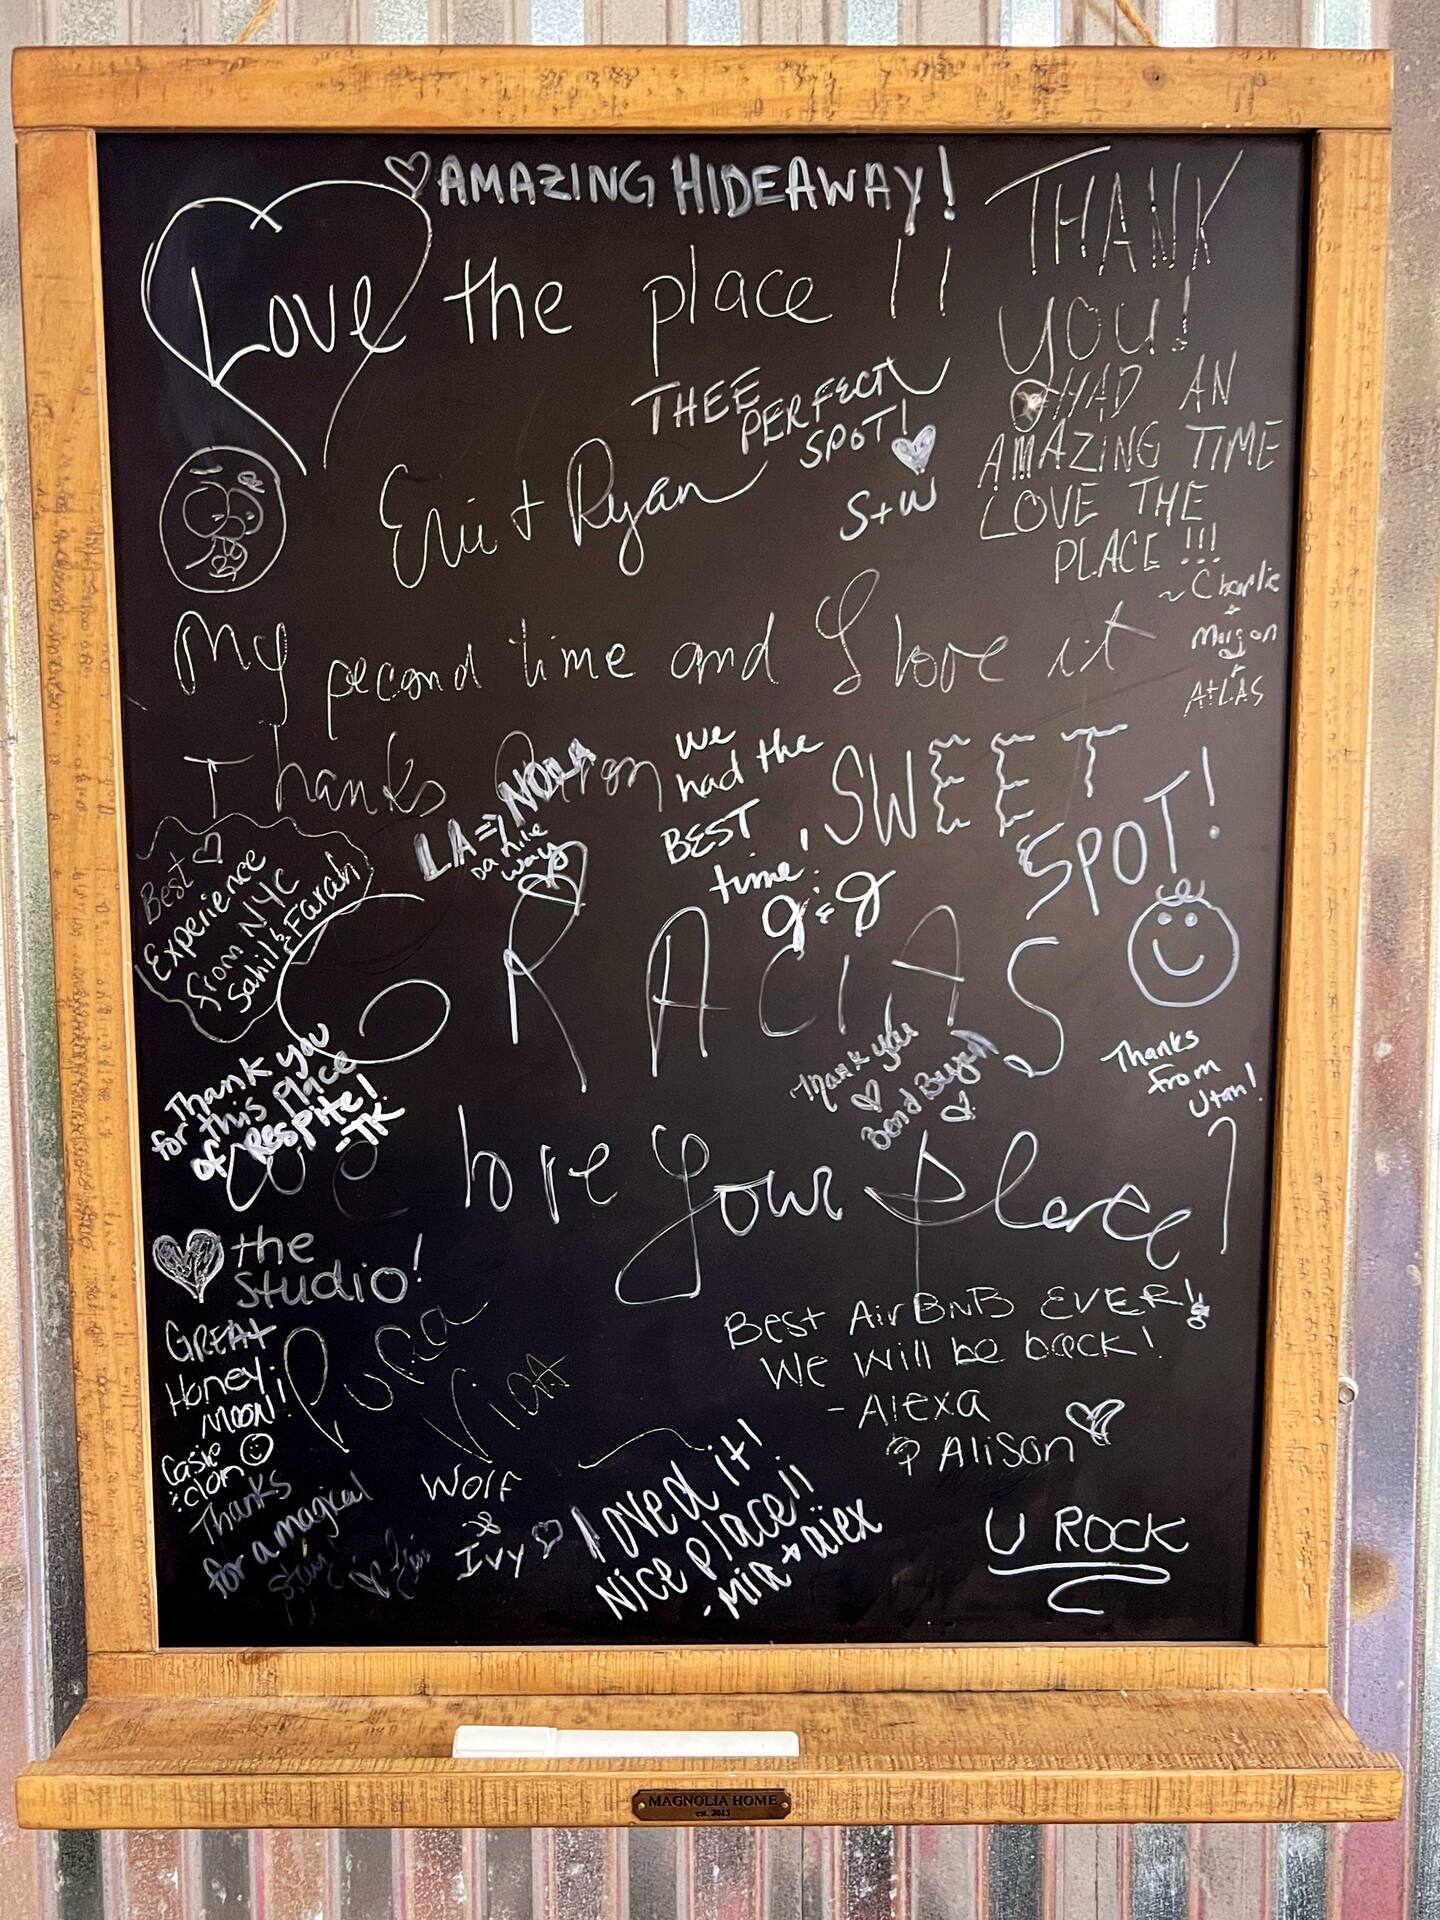 AMAZING HIDEAWAY!
Love the place !!
THANK
YOU!
HAD AN
AMAZING TIME
LOVE THE
PLACE !!!
~Charlie
+
Morgan
+
ATLAS
THEE
PERFECT
SPOT!
S+W
+ Ryan
My second time and I love it
Thanks
LA=>NOLA
Da hile
way
we
had the
BEST
time!
J & J
SWEET
SPOT!
Best
Experience
from NYC
Sahil & Farah
GRACIAS
Thank you
for this place
of Respite!
-TK
Thank you
Thanks
from
Utah!
love your place!
the
Studio!
GREAT
Honey
MOON!!
Casie
Pura
Vida
Best AirBnB EVER!!
We will be back!
- Alexa
& Alison
Thanks
for a magical
stay!
Wolf
&
Ivy
Loved it!
Nice place!!
- Mia + alex
U ROCK
MAGNOLIA HOME
est. 2015